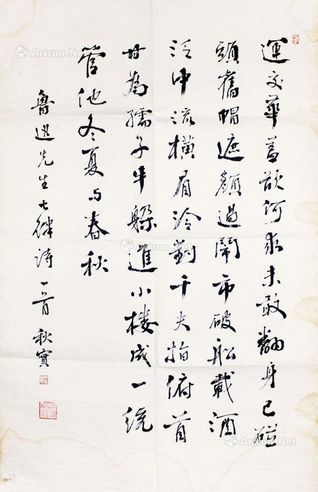 運交華蓋欲何求未敢翻身已碰
頭舊帽遮顏過鬧市破船載酒
泛中流橫眉冷對千夫指俯首
甘為孺子牛躲進小楼成一統
管他冬夏与春秋
魯迅先生七律詩一首 秋實
Artron.Net